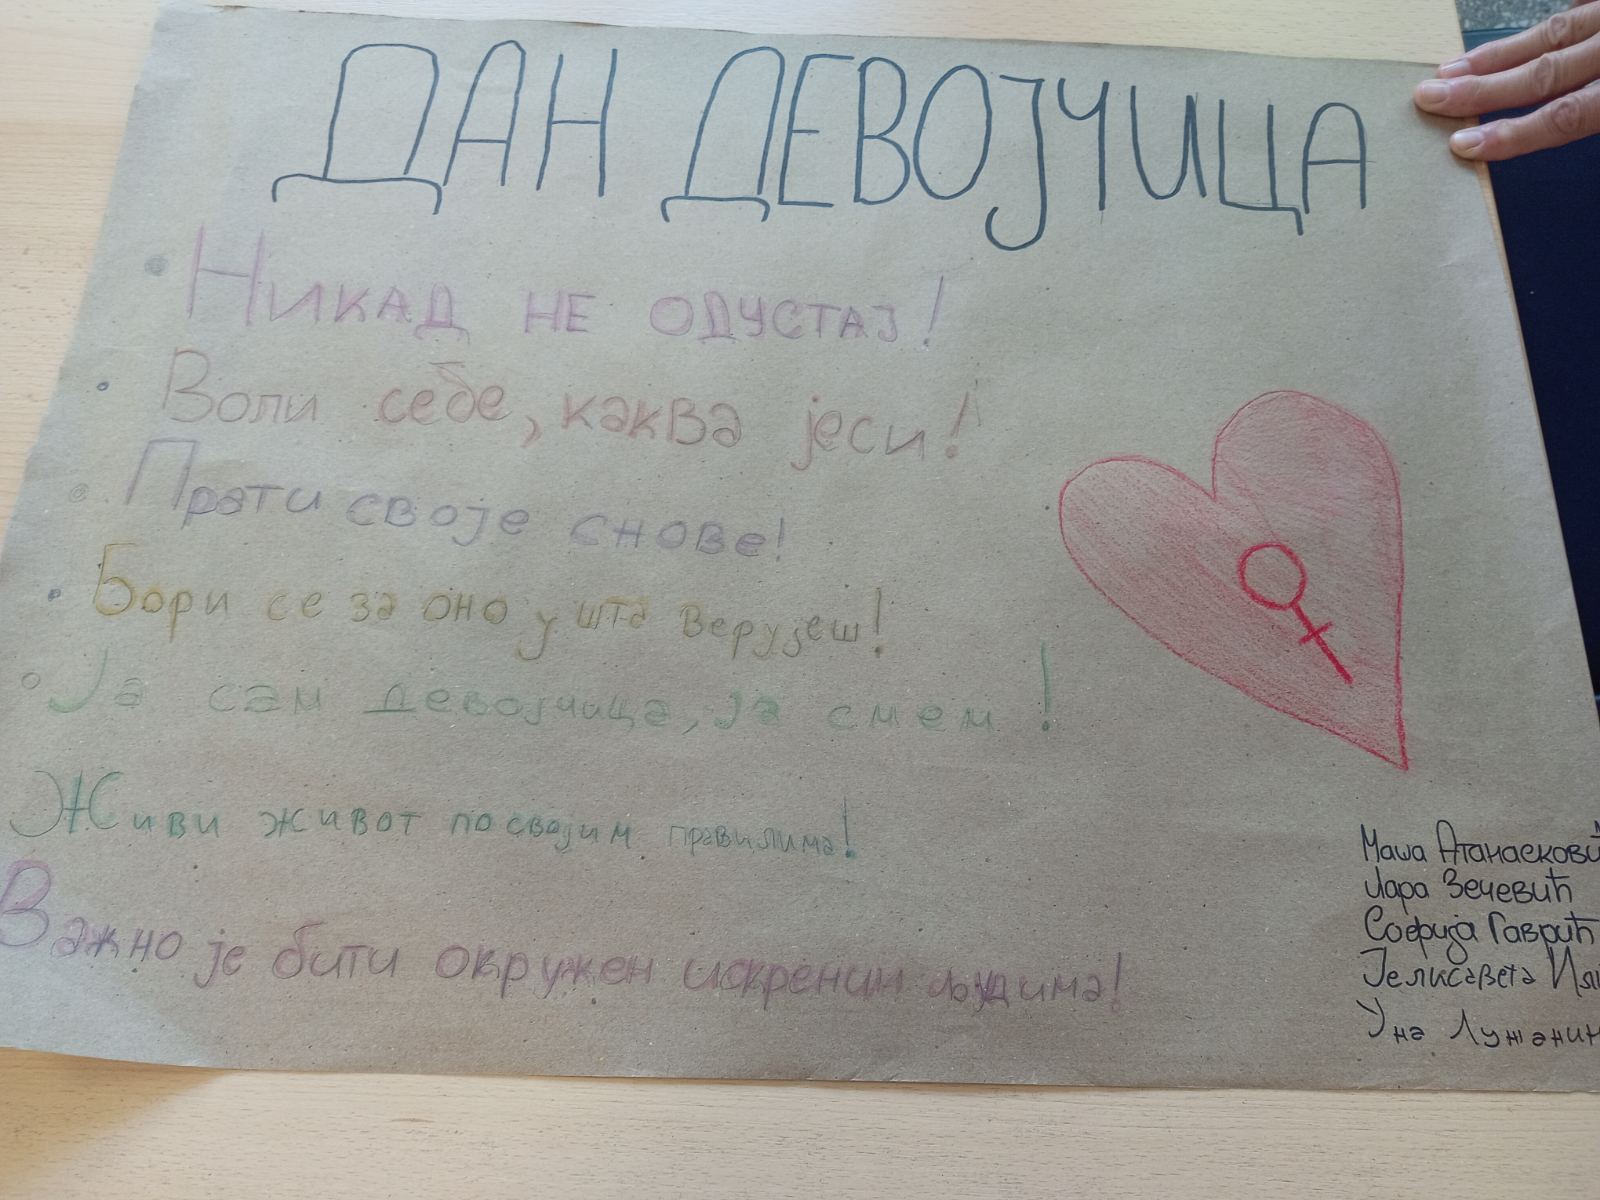 ДАН ДЕВОЈЧИЦА
Никад не одустај!
Воли себе, каква јеси!
Прати своје снове!
Бори се за оно у шта верујеш!
Ја сам девојчица, ја смем!
Живи живот по својим правилима!
Важно је бити окружен искреним људима!
Маша Атанаскови
Лара Зечевић
Софија Гаврић
Јелисавета
Уна Лужанин